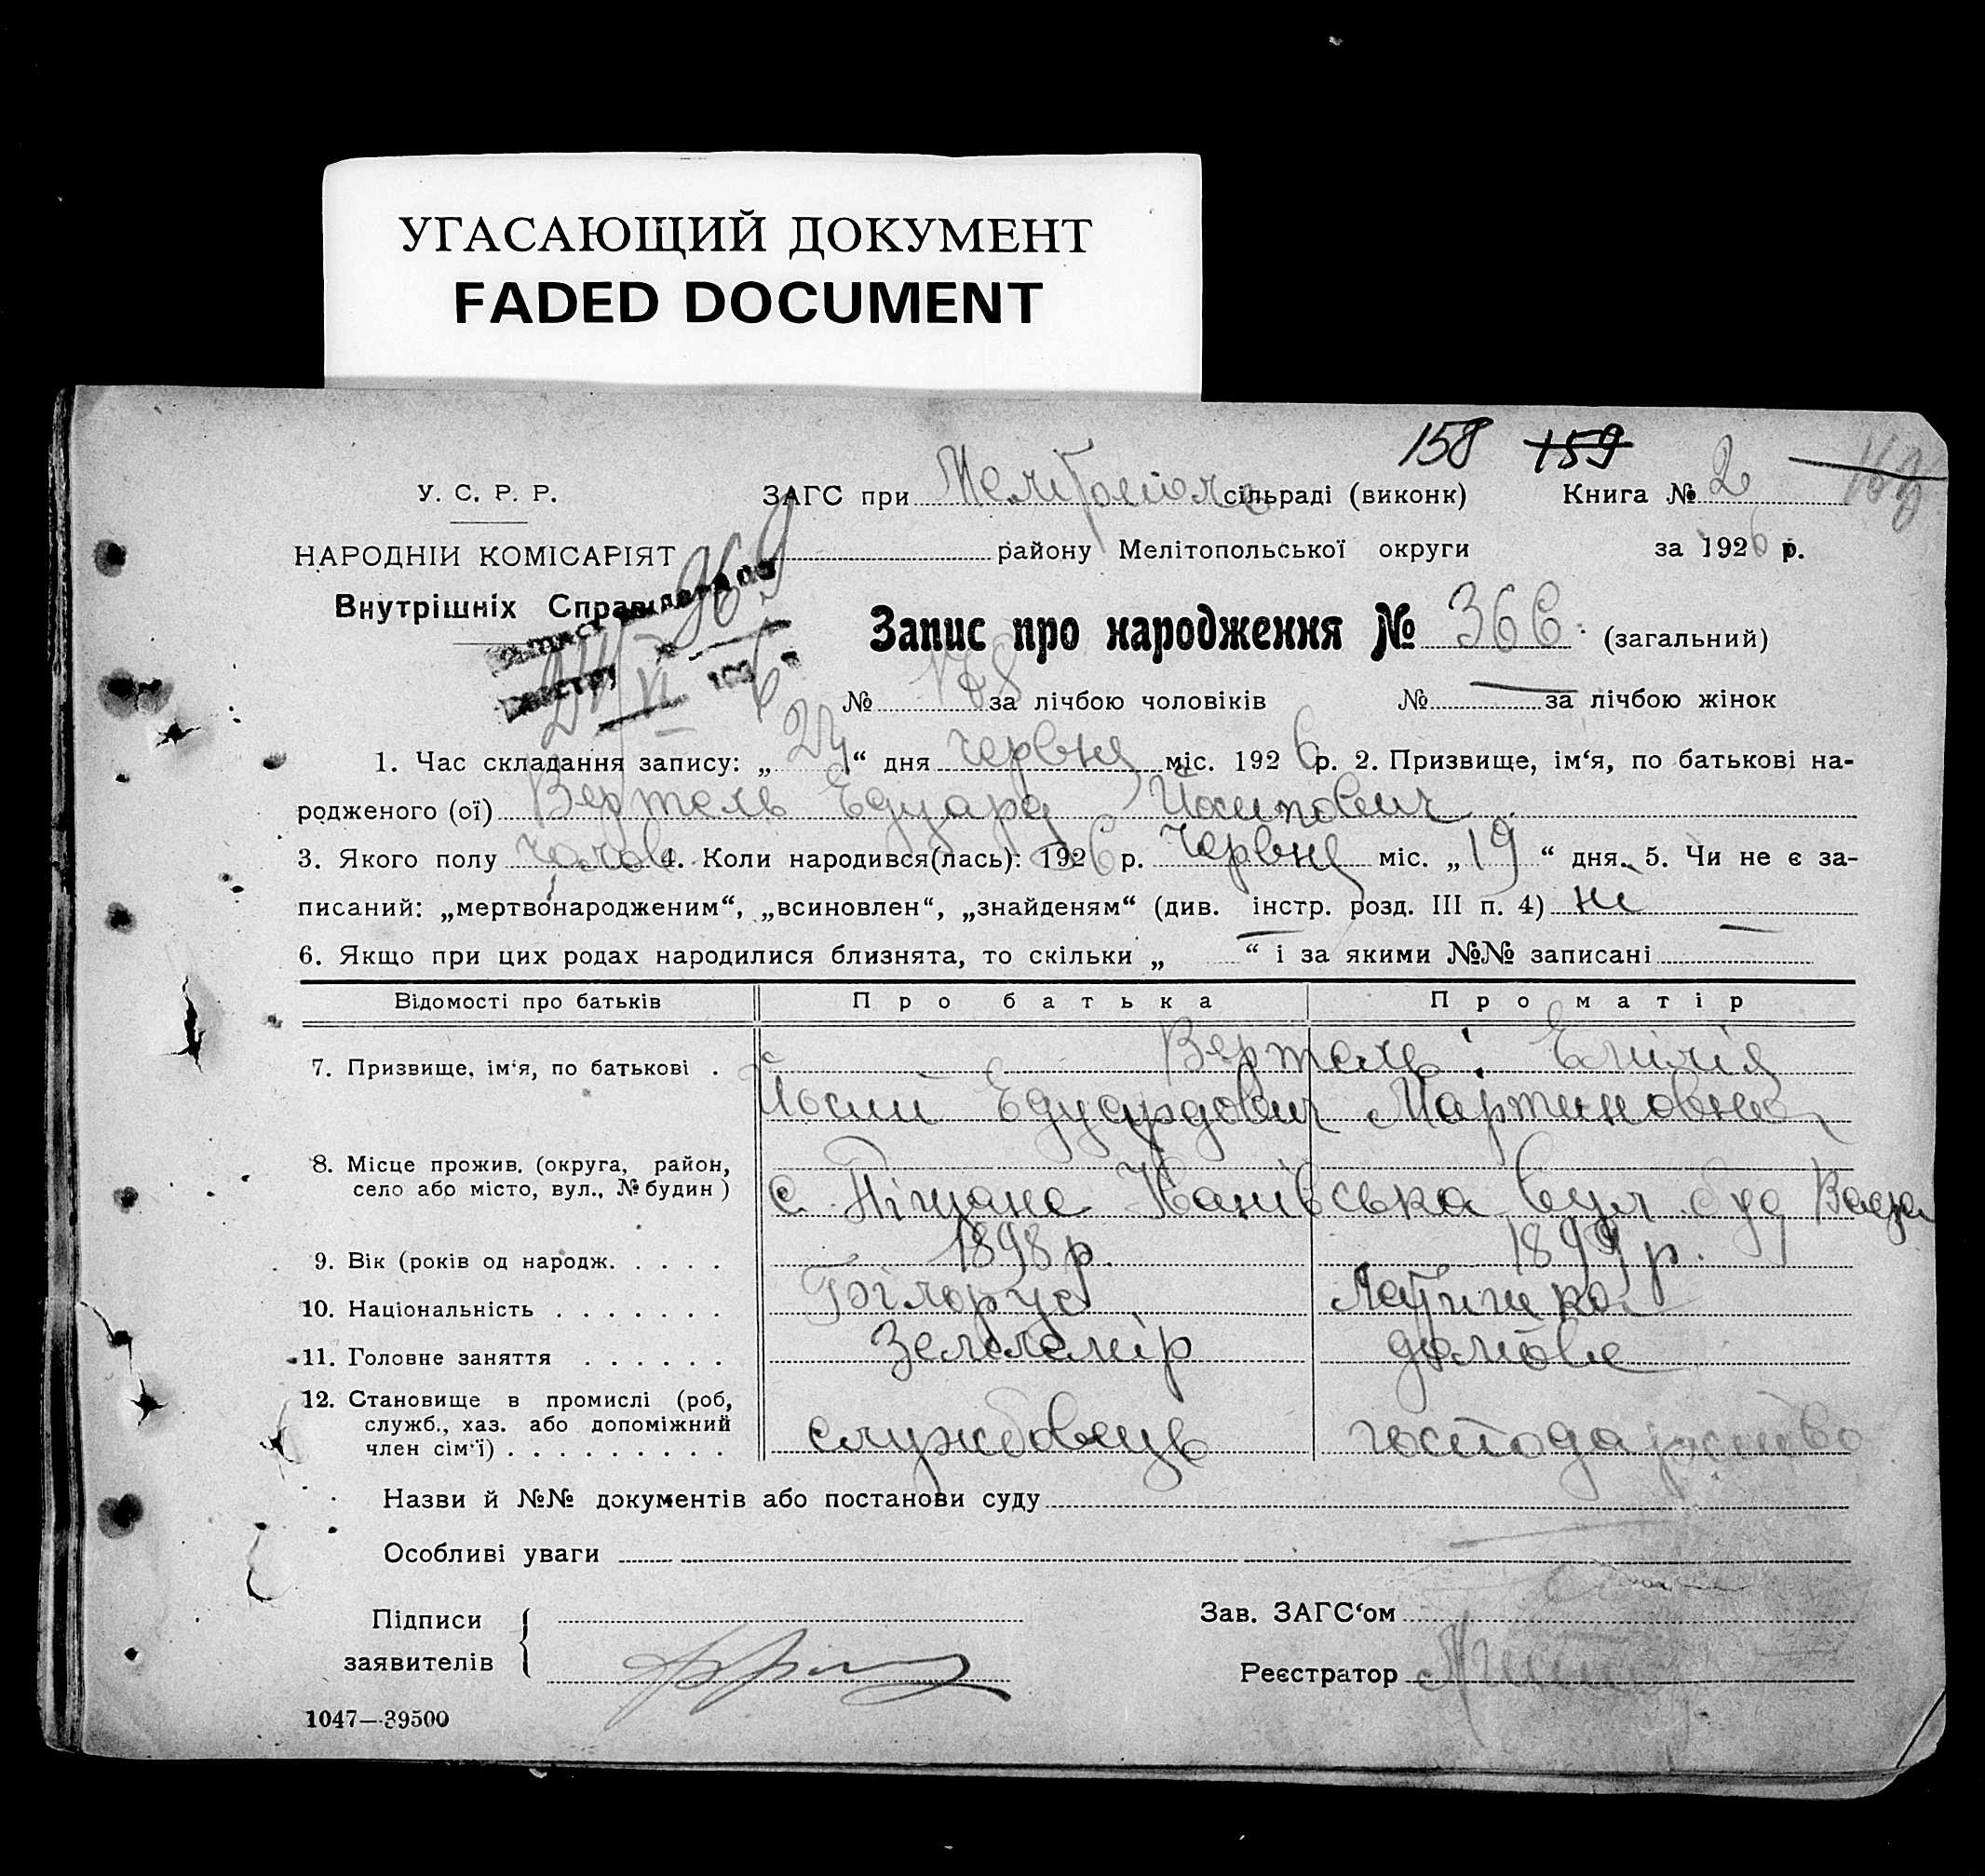 УГАСАЮЩИЙ ДОКУМЕНТ
FADED DOCUMENT
158 159
У. С. Р. Р. ЗАГС при сільраді (виконк) Книга № 2
НАРОДНІЙ КОМІСАРІЯТ району Мелітопольської округи за 1926 р.
Внутрішніх Справ 969
Запис про народження № 366 (загальний)
№ 178 за лічбою чоловіків № — за лічбою жінок
1. Час складання запису: „24“ дня червня міс. 1926 р. 2. Призвище, ім‘я, по батькові на-
родженого (ої) Вертель Едуард Йосипович
3. Якого полу чолов 4. Коли народився(лась): 1926 р. червня міс. „19“ дня. 5. Чи не є за-
писаний: „мертвонародженим“, „всиновлен“, „знайденям“ (див. інстр. розд. III п. 4) ні
6. Якщо при цих родах народилися близнята, то скільки „ — “ і за якими №№ записані —
Відомості про батьків Про батька Про матір
7. Призвище, ім‘я, по батькові . Вертель: Емілія
Йосип Едуардович Мартиновна
8. Місце прожив. (округа, район,
село або місто, вул., № будин) с. Піщане Канівська вул буд
9. Вік (років од народж. . . . . 1898 р. 1899 р.
10. Національність . . . . . . . Білорус Латишка
11. Головне заняття . . . . . . Землемір домове
12. Становище в промислі (роб,
служб., хаз. або допоміжний
член сім‘ї) . . . . . . . . . службовець господарство
Назви й №№ документів або постанови суду
Особливі уваги
Підписи
заявителів
Зав. ЗАГС‘ом
Реєстратор
1047—39500